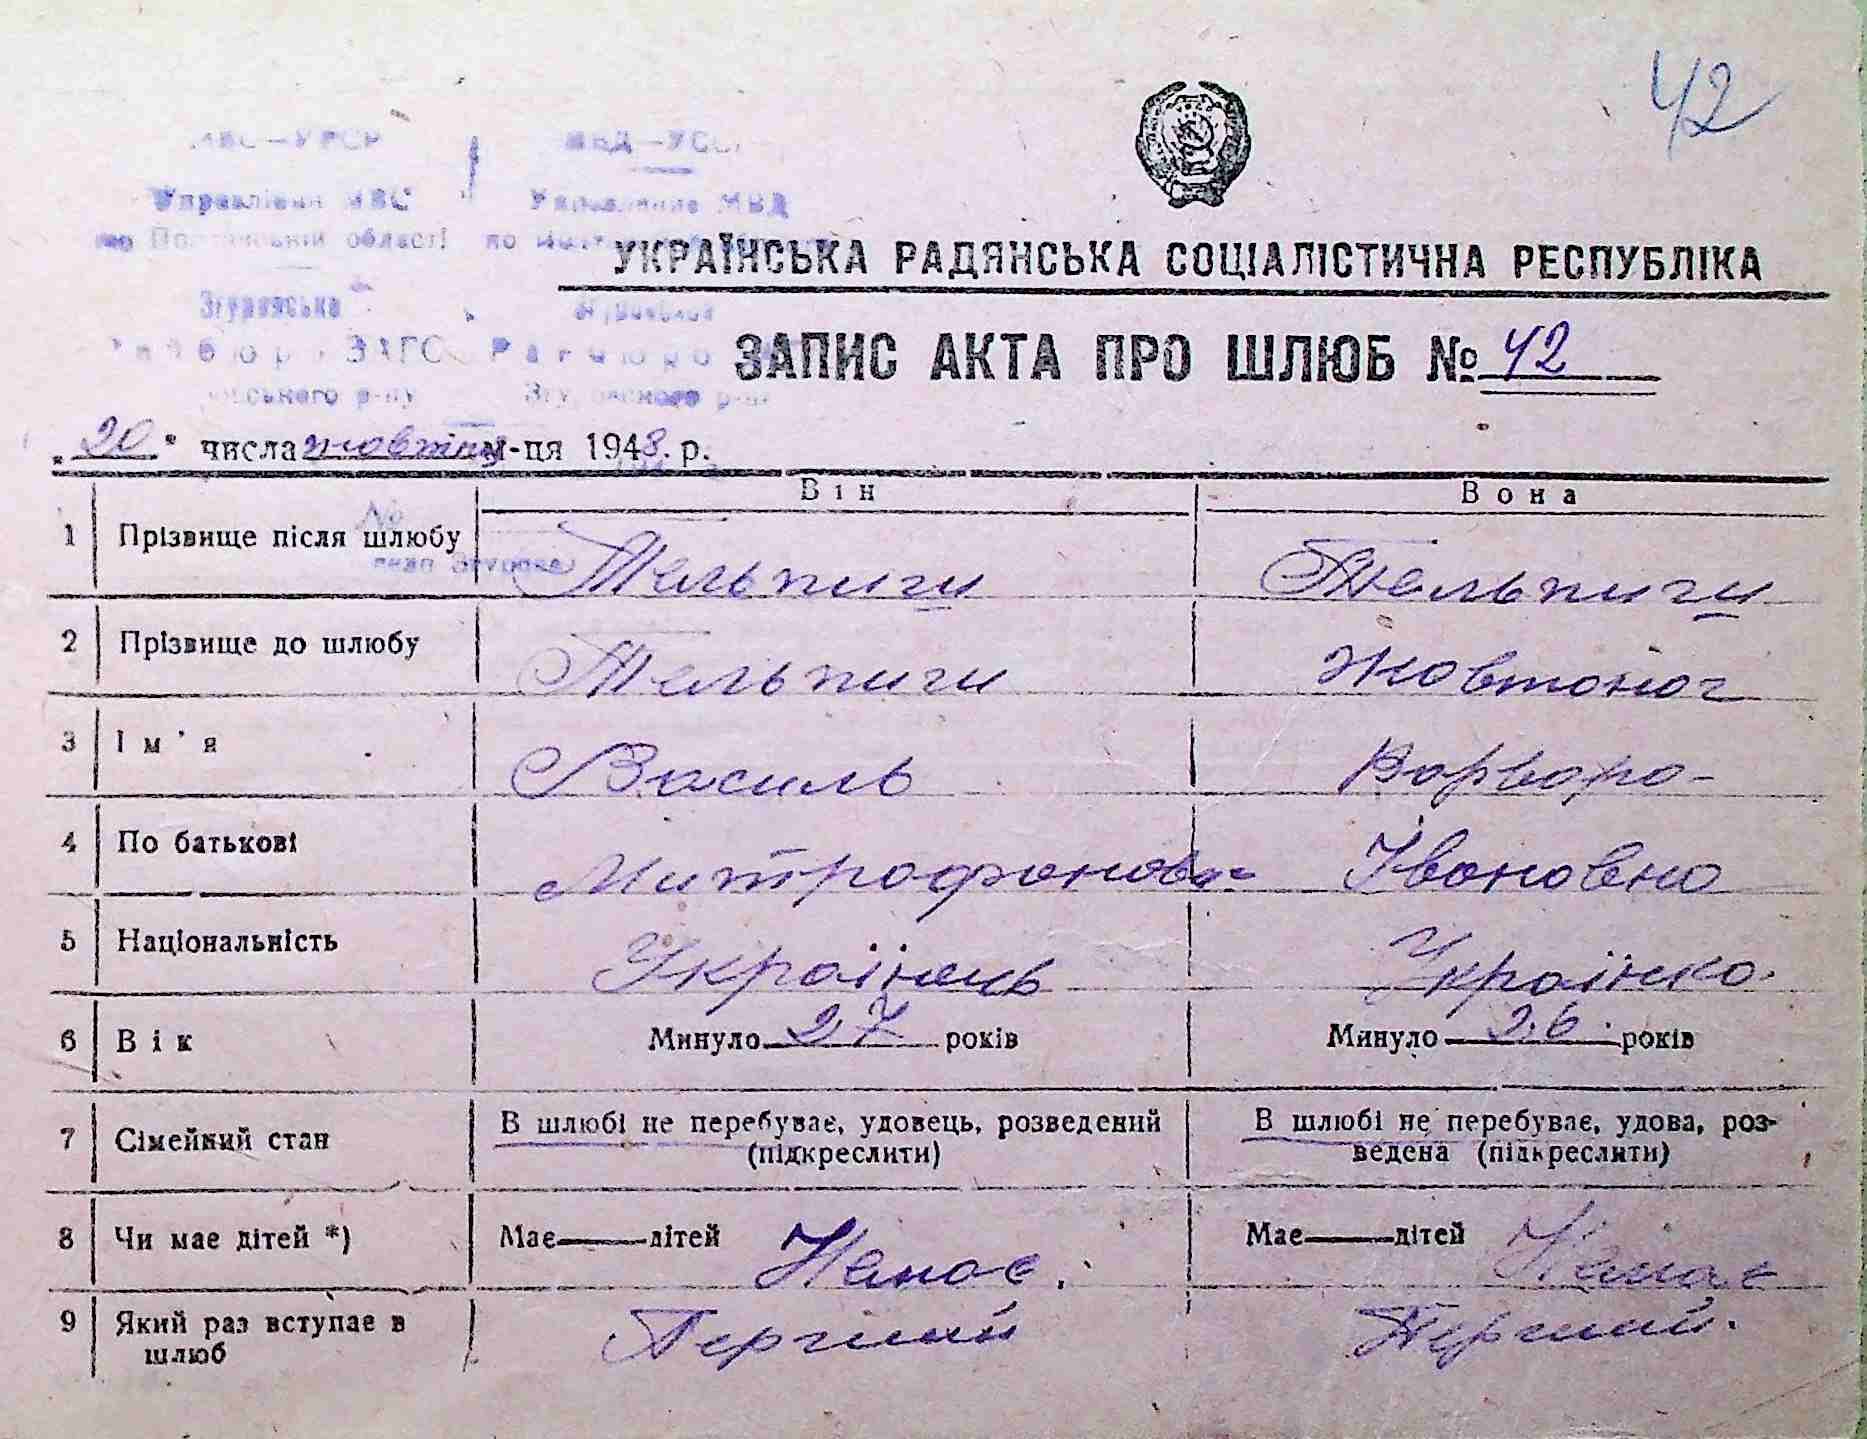 42
УРСР
МВД - УССР
Управління МВС
Управление МВД
по Полтавській області
по
УКРАЇНСЬКА РАДЯНСЬКА СОЦІАЛІСТИЧНА РЕСПУБЛІКА
Згурівська
ЗАГС
ЗАПИС АКТА ПРО ШЛЮБ № 42
„20" числа жовтня м-ця 1948. р.
Він
Вона
1 Прізвище після шлюбу Тельпиги Тельпиги
2 Прізвище до шлюбу Тельпиги Жовтоног
3 Ім'я Василь Варвара
4 По батькові Митрофанович Івановна
5 Національність Українець Українка.
6 Вік Минуло 27 років Минуло 26. років
7 Сімейний стан В шлюбі не перебуває, удовець, розведений В шлюбі не перебуває, удова, роз-
(підкреслити) ведена (підкреслити)
8 Чи має дітей *) Має — дітей Немає. Має — дітей Немає
9 Який раз вступає в Перший Перший.
шлюб